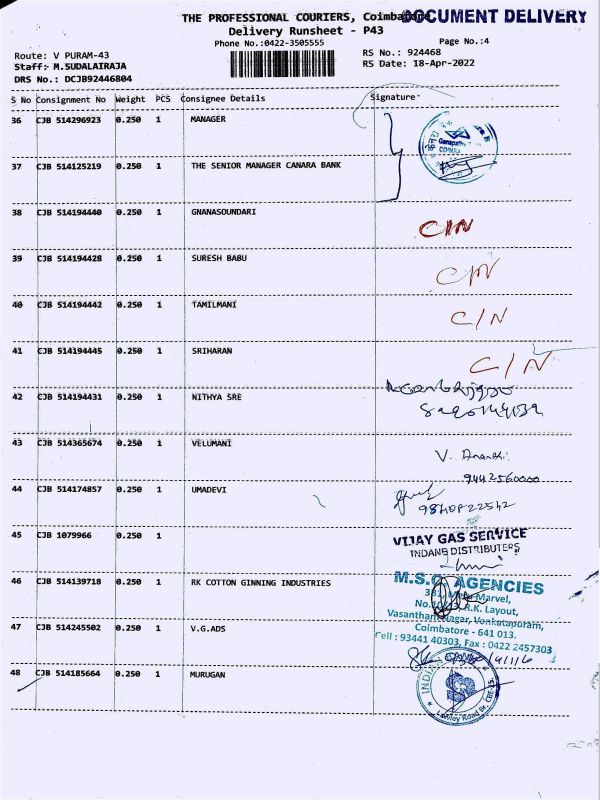 THE PROFESSIONAL COURIERS, Coimbatore
DOCUMENT DELIVERY
Delivery Runsheet - P43
Phone No.:0422-3505555
Page No.:4
Route: V PURAM-43
RS No.: 924468
Staff: M.SUDALAIRAJA
RS Date: 18-Apr-2022
DRS No.: DCJB92446804
S No Consignment No Weight PCS Consignee Details Signature
36 CJB 514296923 0.250 1 MANAGER
37 CJB 514125219 0.250 1 THE SENIOR MANAGER CANARA BANK
38 CJB 514194440 0.250 1 GNANASOUNDARI
C/N
39 CJB 514194428 0.250 1 SURESH BABU
C/N
40 CJB 514194442 0.250 1 TAMILMANI
C/N
41 CJB 514194445 0.250 1 SRIHARAN
C/N
42 CJB 514194431 0.250 1 NITHYA SRE
43 CJB 514365674 0.250 1 VELUMANI
V.
9442560000
44 CJB 514174857 0.250 1 UMADEVI
45 CJB 1079966 0.250 1
VIJAY GAS SERVICE
INDANE DISTRIBUTERS
46 CJB 514139718 0.250 1 RK COTTON GINNING INDUSTRIES
AGENCIES
Marvel,
R.K. Layout,
Vasanthan Nagar, Venkatapuram,
Coimbatore - 641 013.
Cell : 93441 40303, Fax : 0422 2457303
47 CJB 514245502 0.250 1 V.G.ADS
48 CJB 514185664 0.250 1 MURUGAN
Lawley Road Br.